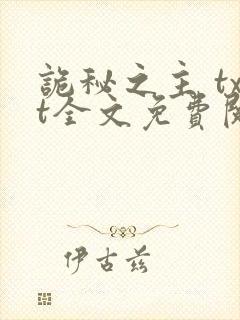 詭秘之主 tx
t全文免費閱
伊古茲